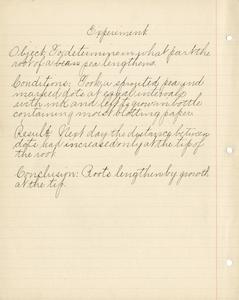 Experiment
Object: To determine in what part the
root of a bean, pea lengthens.
Conditions: Took a sprouted pea and
marked dots at equal intervals
with ink and left to grow in bottle
containing moist blotting paper.
Result: Next day the distance between
dots had increased only at the tip of
the root.
Conclusion: Roots lengthen by growth
at the tip.